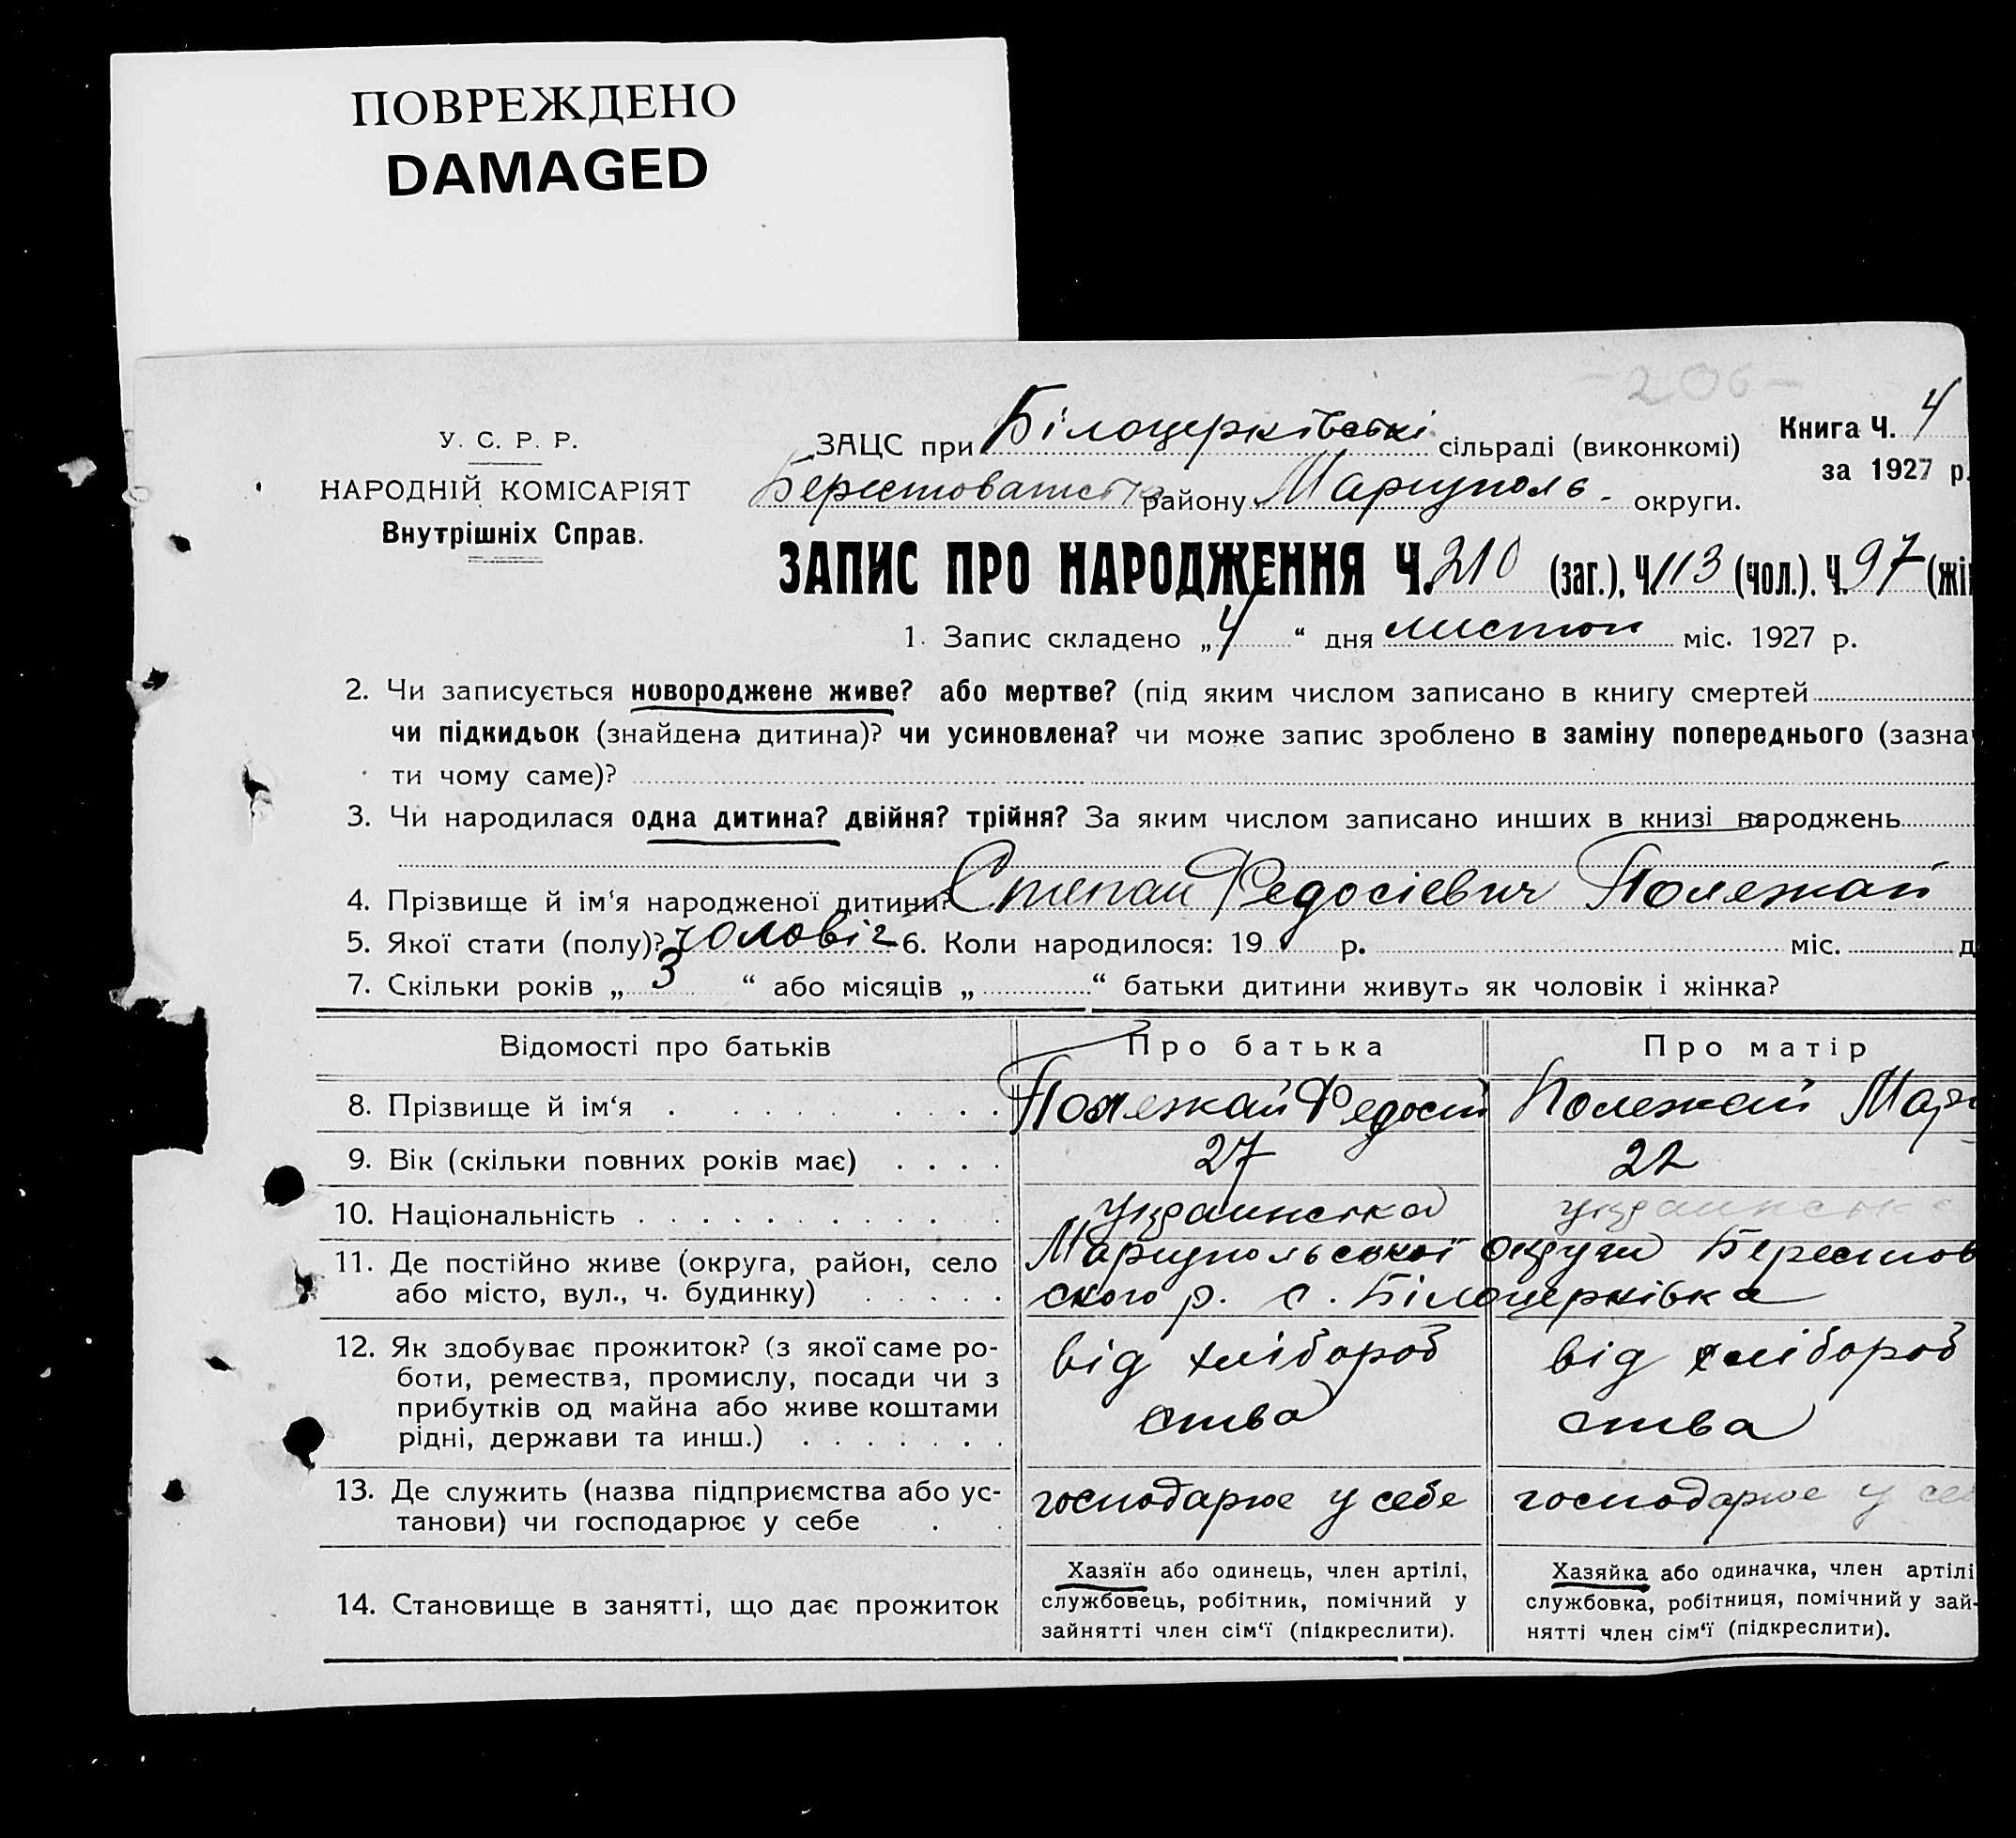 ПОВРЕЖДЕНО
DAMAGED
-206-
У. С. Р. Р.
НАРОДНІЙ КОМІСАРІЯТ
Внутрішніх Справ.
ЗАЦС при Білоцерківські сільраді (виконкомі)
Книга Ч. 4
за 1927 р.
району Маріуполь- округи.
ЗАПИС ПРО НАРОДЖЕННЯ Ч. 210 (заг.), Ч. 113 (чол.). Ч. 97 (жі
1. Запис складено „4“ дня листоп міс. 1927 р.
2. Чи записується новороджене живе? або мертве? (під яким числом записано в книгу смертей
чи підкидьок (знайдена дитина)? чи усиновлена? чи може запис зроблено в заміну попереднього (зазна
ти чому саме)?
3. Чи народилася одна дитина? двійня? трійня? За яким числом записано инших в книзі народжень
4. Прізвище й ім‘я народженої дитини? Степан Федосієвич Полежай
5. Якої стати (полу)? чоловіч 6. Коли народилося: 19 р. міс. д
7. Скільки років „3“ або місяців „ “ батьки дитини живуть як чоловік і жінка?
Відомості про батьків Про батька Про матір
8. Прізвище й ім‘я Полежай Федосій Полежай
9. Вік (скільки повних років має) 27 22
10. Національність украинська украинська
11. Де постійно живе (округа, район, село Маріупольської округи Берестов
або місто, вул., ч. будинку) ского р. с. Білоцерківка
12. Як здобуває прожиток? (з якої саме ро-
боти, ремества, промислу, посади чи з
прибутків од майна або живе коштами
рідні, держави та инш.)
від хлібороб
ства
від хлібороб
ства
13. Де служить (назва підприємства або ус-
танови) чи господарює у себе
господарює у себе
господарює у себ
14. Становище в занятті, що дає прожиток
Хазяїн або одинець, член артілі,
службовець, робітник, помічний у
зайнятті член сім‘ї (підкреслити).
Хазяйка або одиначка, член артілі
службовка, робітниця, помічний у зай-
нятті член сім‘ї (підкреслити).